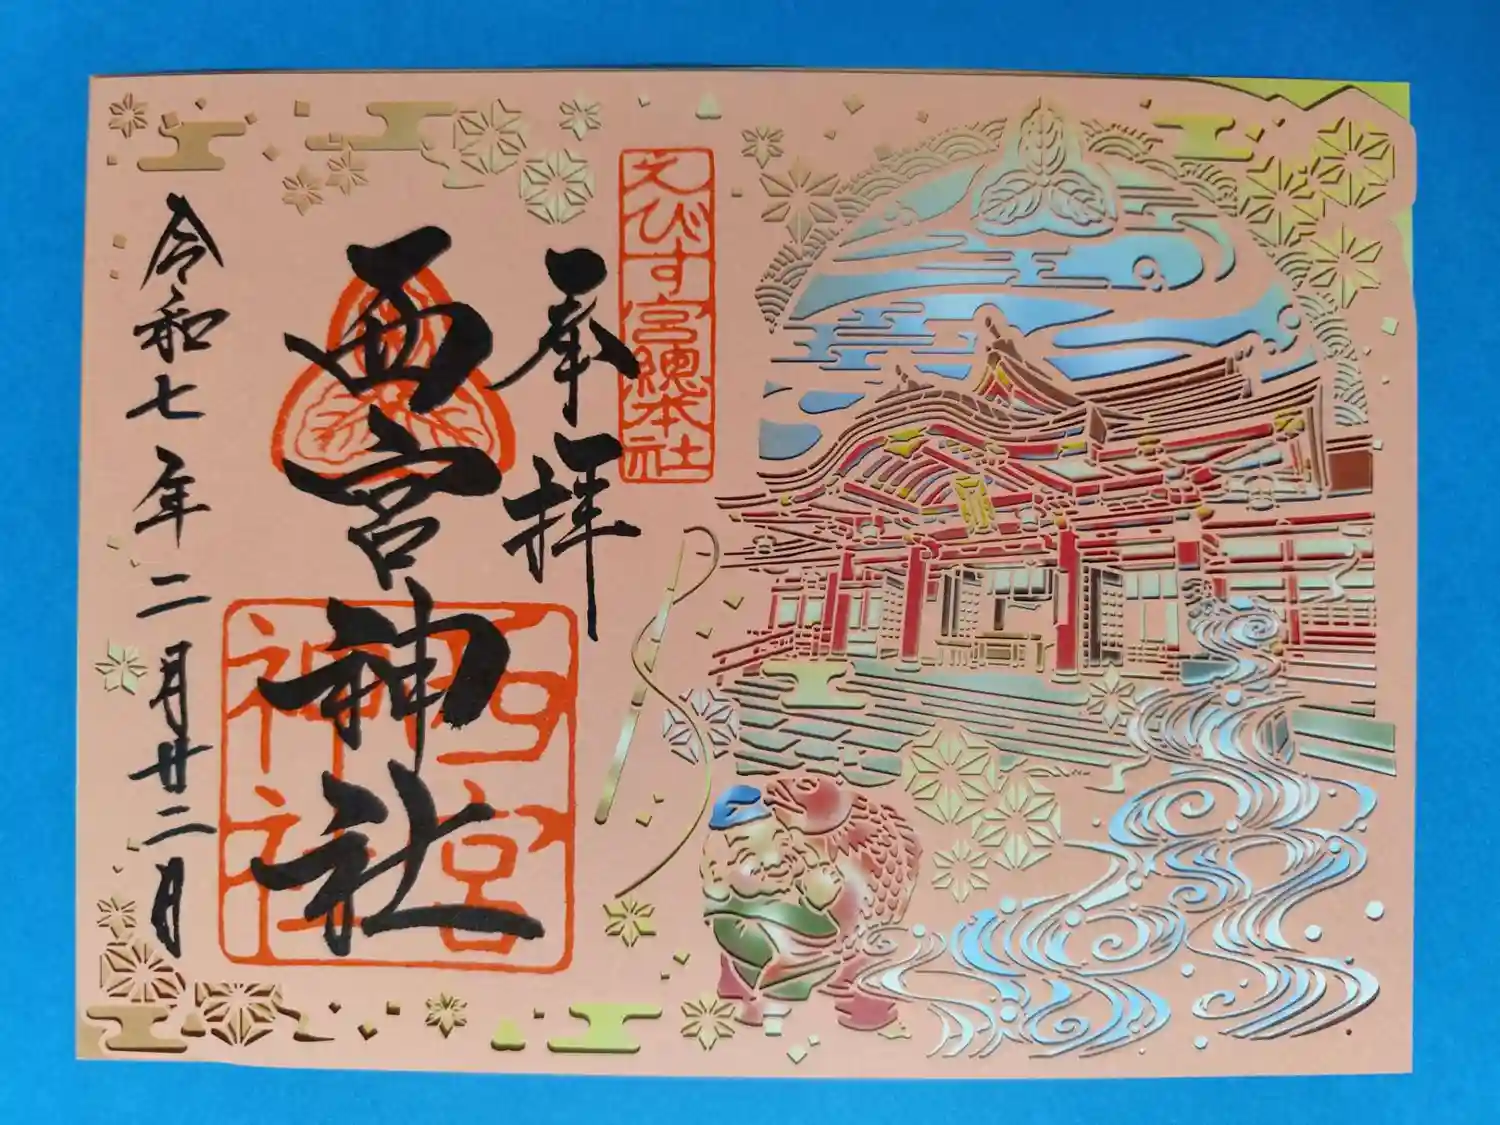 えびす宮總本社
奉拝
西宮神社
西宮
神社
令和七年二月廿二日